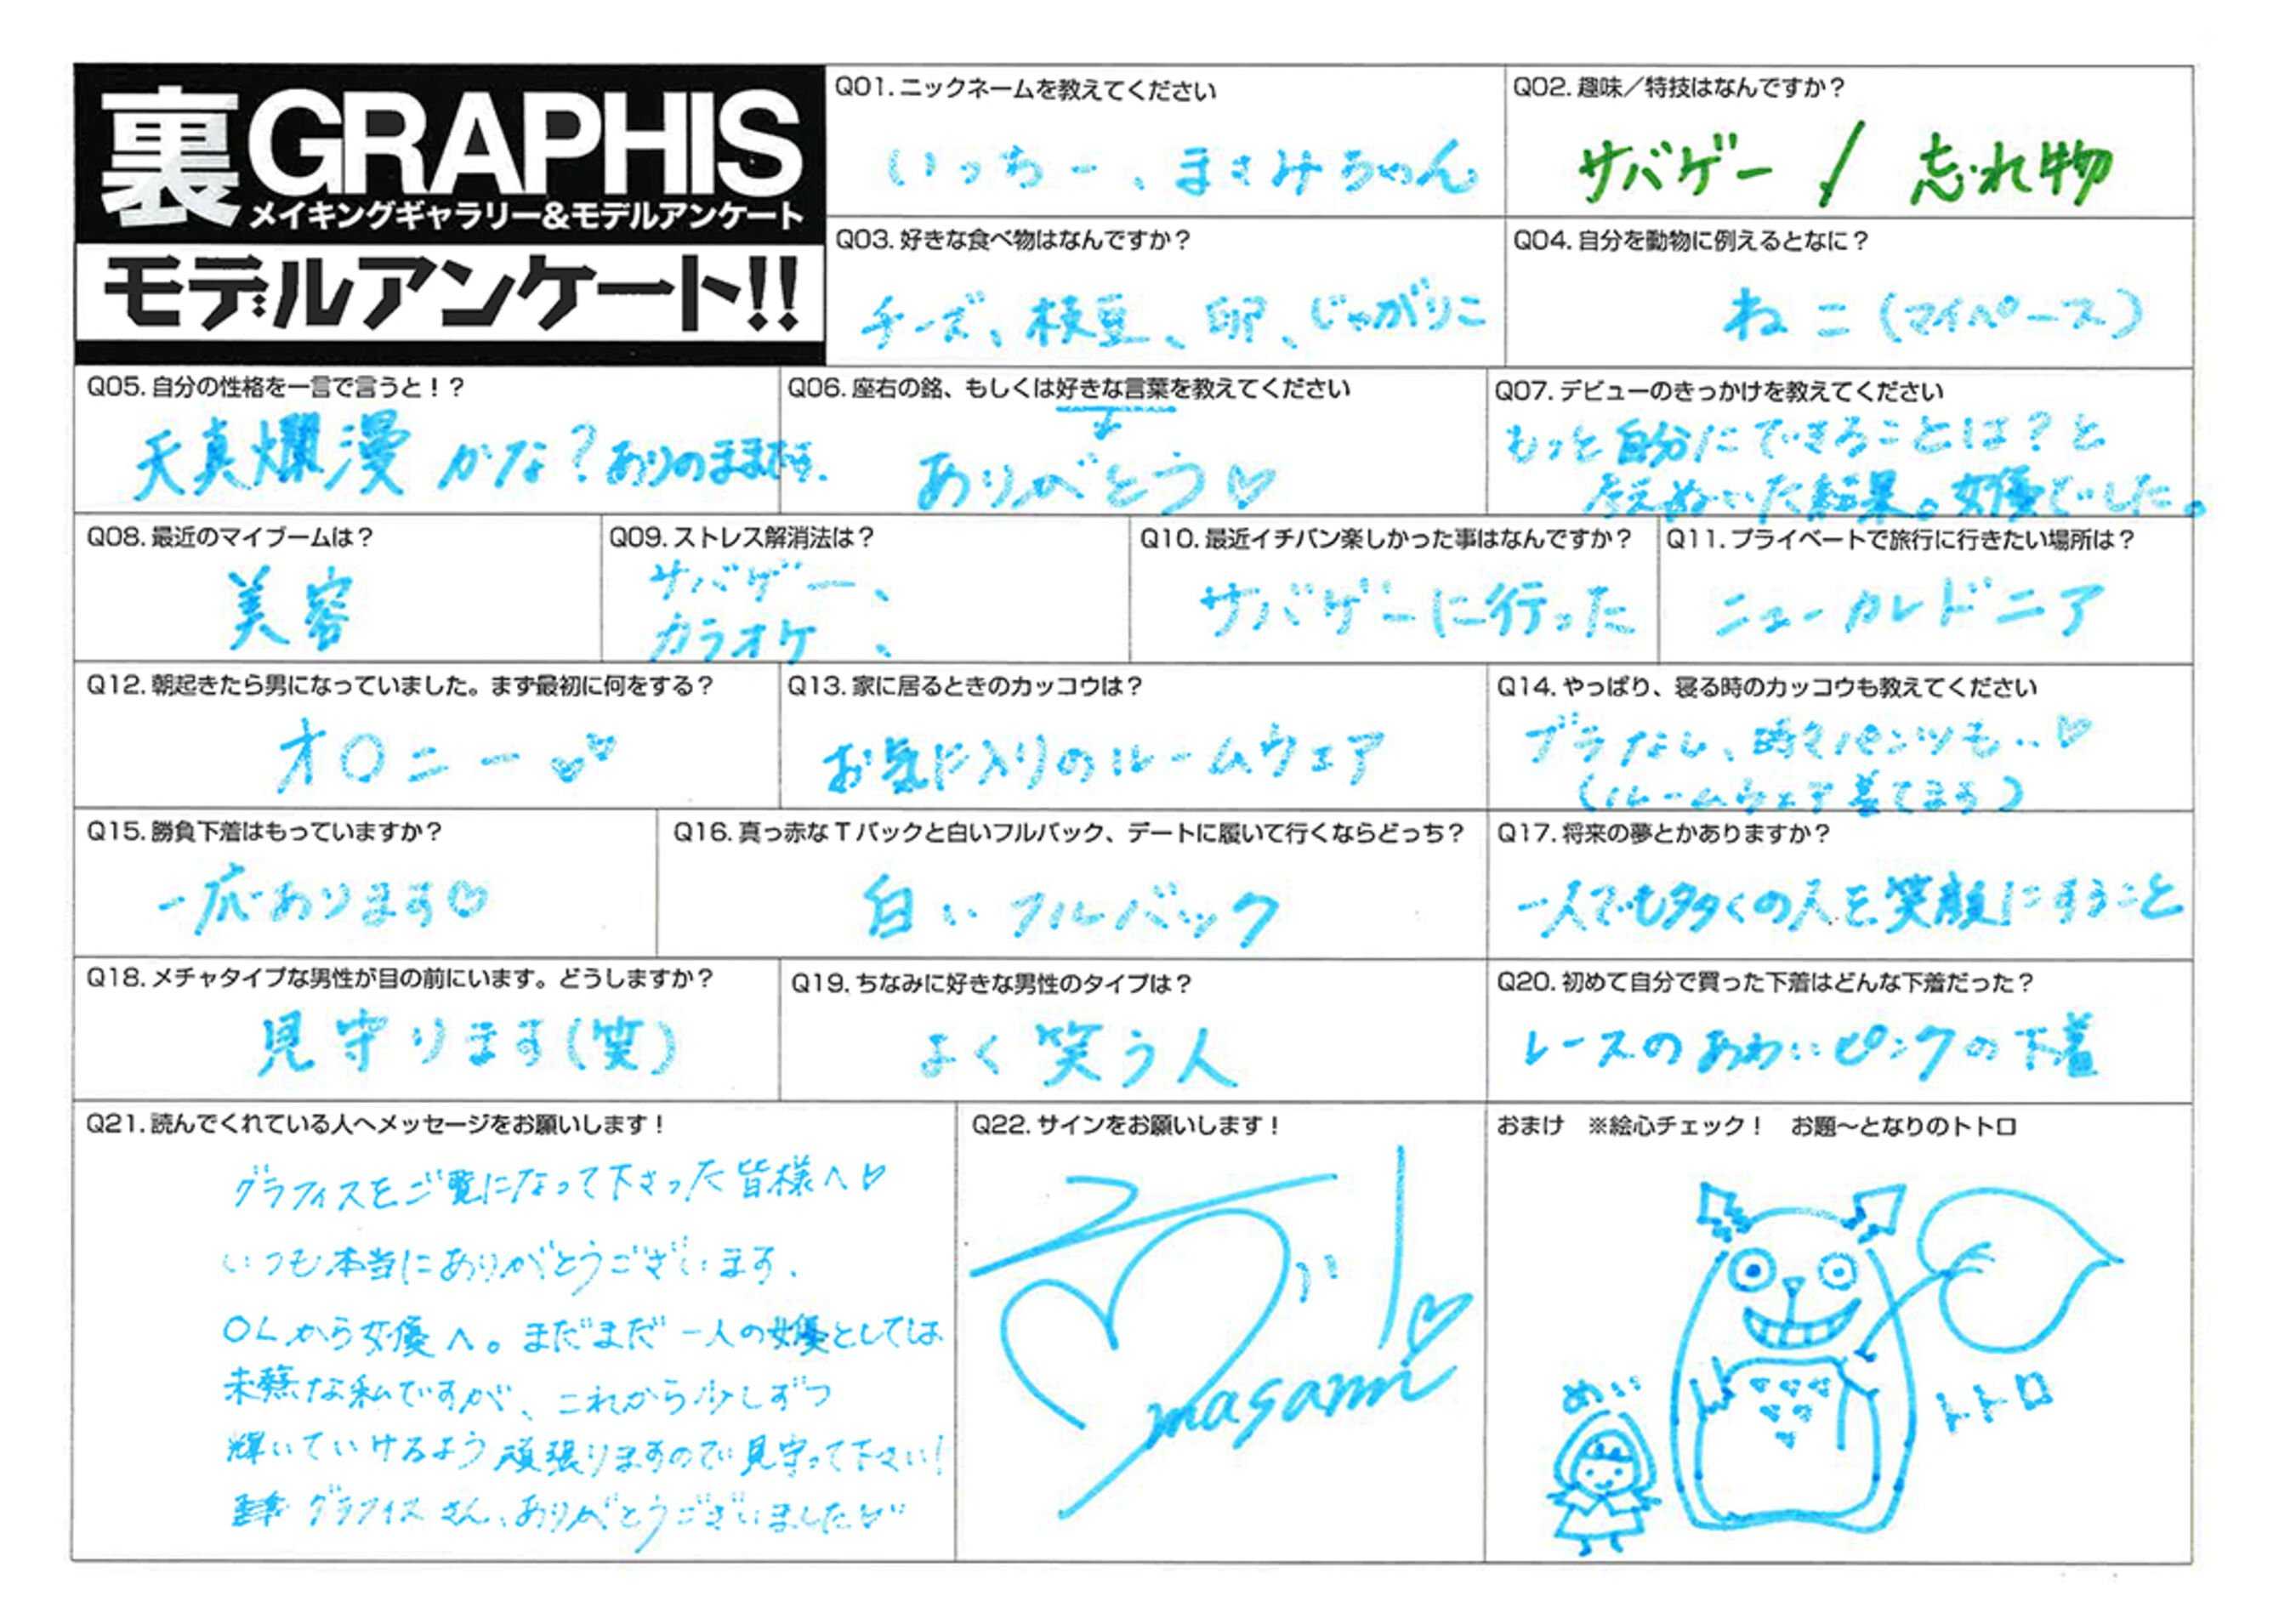 裏GRAPHIS
メイキングギャラリー&モデルアンケート
モデルアンケート!!
Q01.ニックネームを教えてください
いっちー、まさみちゃん
Q02.趣味／特技はなんですか？
サバゲー / 忘れ物
Q03.好きな食べ物はなんですか？
チーズ、枝豆、卵、じゃがりこ
Q04.自分を動物に例えるとなに？
ねこ(マイペース)
Q05.自分の性格を一言で言うと！？
天真爛漫かな？ありのまま
Q06.座右の銘、もしくは好きな言葉を教えてください
ありがとう♡
Q07.デビューのきっかけを教えてください
もっと自分にできることは？と
考えぬいた結果。女優でした。
Q08.最近のマイブームは？
美容
Q09.ストレス解消法は？
サバゲー、
カラオケ、
Q10.最近イチバン楽しかった事はなんですか？
サバゲーに行った
Q11.プライベートで旅行に行きたい場所は？
ニューカレドニア
Q12.朝起きたら男になっていました。まず最初に何をする？
オ〇ニー♡♡
Q13.家に居るときのカッコウは？
お気に入りのルームウェア
Q14.やっぱり、寝る時のカッコウも教えてください
ブラなし、時々パンツも..♡
(ルームウェア着てます)
Q15.勝負下着はもっていますか？
一応あります♡
Q16.真っ赤なTバックと白いフルバック、デートに履いて行くならどっち？
白いフルバック
Q17.将来の夢とかありますか？
一人でも多くの人を笑顔にすること
Q18.メチャタイプな男性が目の前にいます。どうしますか？
見守ります(笑)
Q19.ちなみに好きな男性のタイプは？
よく笑う人
Q20.初めて自分で買った下着はどんな下着だった？
レースのあわいピンクの下着
Q21.読んでくれている人へメッセージをお願いします！
グラフィスをご覧になって下さった皆様へ♡
いつも本当にありがとうございます、
OLから女優へ。まだまだ一人の女優としては
未熟な私ですが、これから少しずつ
輝いていけるよう頑張りますので見守って下さい！
グラフィスさん、ありがとうございました♡
Q22.サインをお願いします！
masami
おまけ ※絵心チェック！ お題〜となりのトトロ
めい
トトロ